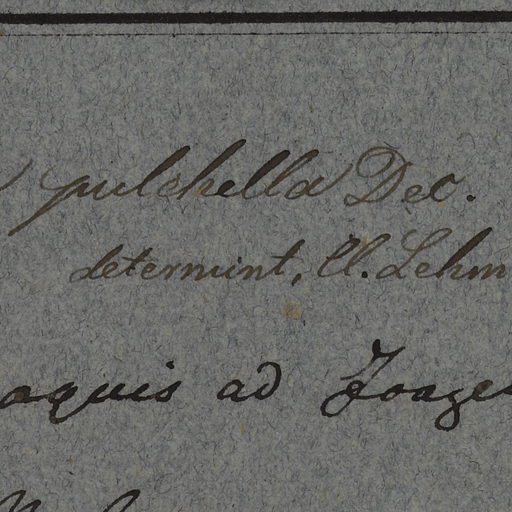 pulchella Dec.
determint, Cl. Lehm
aquis ad